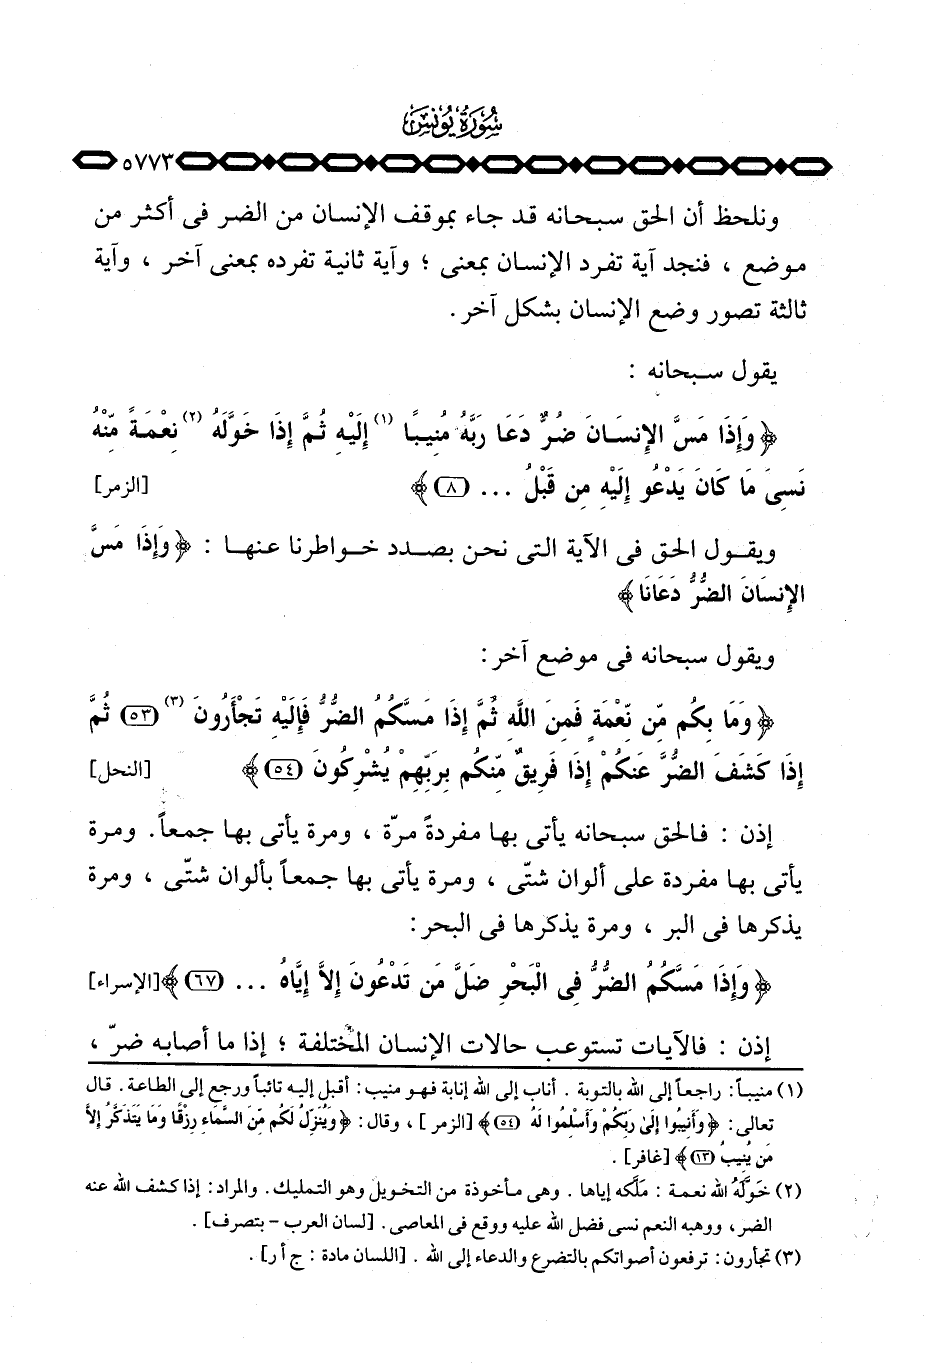 سُورَةُ يُونُسَ
٥٧٧٣
ونلحظ أن الحق سبحانه قد جاء بموقف الإنسان من الضر فى أكثر من
موضع ، فنجد آية تفرد الإنسان بمعنى ؛ وآية ثانية تفرده بمعنى آخر ، وآية
ثالثة تصور وضع الإنسان بشكل آخر.
يقول سبحانه :
﴿ وَإِذَا مَسَّ الإِنسَانَ ضُرٌّ دَعَا رَبَّهُ مُنِيبًا (١) إِلَيْهِ ثُمَّ إِذَا خَوَّلَهُ (٢) نِعْمَةً مِّنْهُ
نَسِىَ مَا كَانَ يَدْعُو إِلَيْهِ مِن قَبْلُ ... (٨) ﴾ [الزمر]
ويقول الحق فى الآية التى نحن بصدد خواطرنا عنها : ﴿ وَإِذَا مَسَّ
الإِنسَانَ الضُّرُّ دَعَانَا ﴾
ويقول سبحانه فى موضع آخر:
﴿ وَمَا بِكُم مِّن نِّعْمَةٍ فَمِنَ اللَّهِ ثُمَّ إِذَا مَسَّكُمُ الضُّرُّ فَإِلَيْهِ تَجْأَرُونَ (٣) (٥٣) ثُمَّ
إِذَا كَشَفَ الضُّرَّ عَنكُمْ إِذَا فَرِيقٌ مِّنكُم بِرَبِّهِمْ يُشْرِكُونَ (٥٤) ﴾ [النحل]
إذن : فالحق سبحانه يأتى بها مفردةً مرّة ، ومرة يأتى بها جمعاً. ومرة
يأتى بها مفردة على ألوان شتّى ، ومرة يأتى بها جمعاً بألوان شتّى ، ومرة
يذكرها فى البر ، ومرة يذكرها فى البحر:
﴿ وَإِذَا مَسَّكُمُ الضُّرُّ فِى الْبَحْرِ ضَلَّ مَن تَدْعُونَ إِلاَّ إِيَّاهُ ... (٦٧) ﴾ [الإسراء]
إذن : فالآيات تستوعب حالات الإنسان المختلفة ؛ إذا ما أصابه ضرّ ،
(١) منيباً: راجعاً إلى الله بالتوبة . أناب إلى الله إنابة فهو منيب: أقبل إليه تائباً ورجع إلى الطاعة . قال
تعالى: ﴿ وَأَنِيبُوا إِلَىٰ رَبِّكُمْ وَأَسْلِمُوا لَهُ (٥٤) ﴾ [الزمر] ، وقال: ﴿ وَيُنَزِّلُ لَكُم مِّنَ السَّمَاءِ رِزْقًا وَمَا يَتَذَكَّرُ إِلاَّ
مَن يُنِيبُ (١٣) ﴾ [غافر] .
(٢) خَوَّلَهُ الله نعمة : مَلَّكه إياها . وهى مأخوذة من التخويل وهو التمليك. والمراد: إذا كشف الله عنه
الضر، ووهبه النعم نسى فضل الله عليه ووقع فى المعاصى. [لسان العرب - بتصرف] .
(٣) تجأرون: ترفعون أصواتكم بالتضرع والدعاء إلى الله . [اللسان مادة : ج أ ر] .